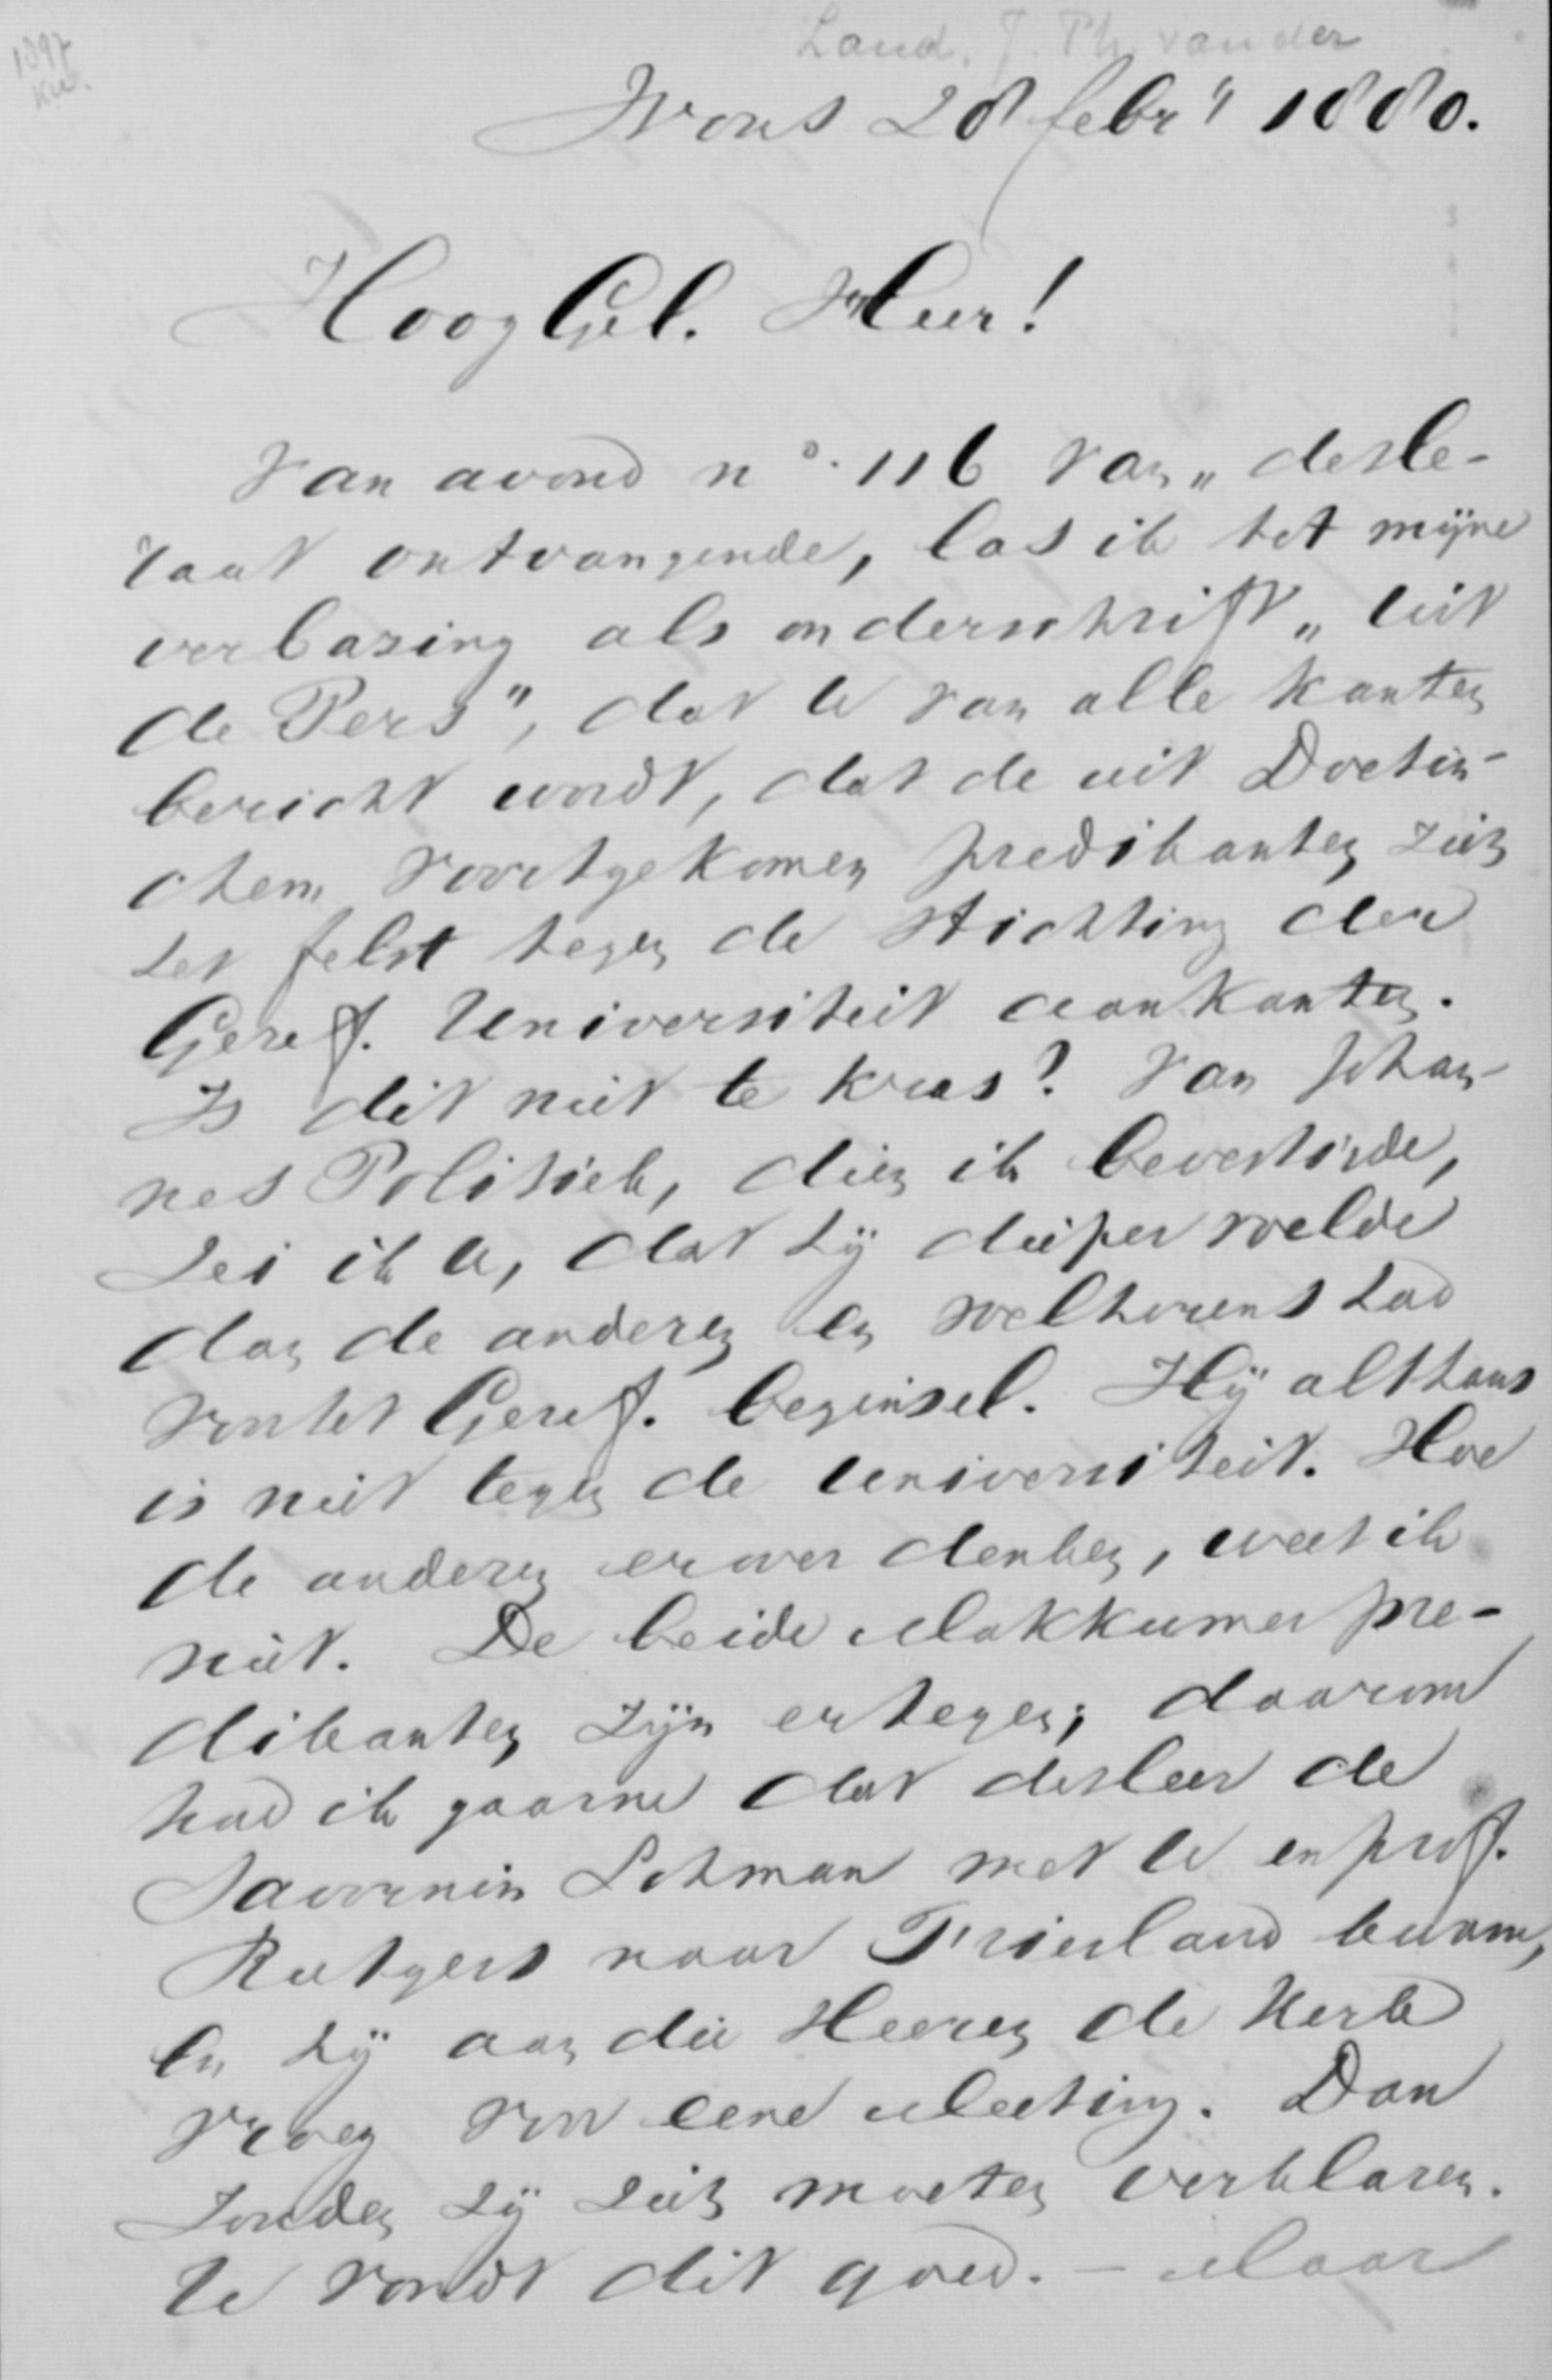 1897
Kuij.
Land. J. Th. van der
Wons 28 febrij 1880.
HoogGel. Heer!
Van avond n°. 116 van „deHe-
raut ontvangende, las ik tot mijne
verbazing als onderschrift „uit
de Pers", dat U van alle kanten
bericht wordt, dat de uit Doetin-
chem voortgekomen predikanten zich
het felst tegen de stichting der
Geref. Universiteit aankanten.
Is dit niet te kras? Van Johan-
nes Politiek, dien ik bevestigde,
zei ik U, dat hij dieper voelde
dan de anderen en veel horens had
voor het Geref. beginsel. Hij althans
is niet tegen de Universiteit. Hoe
de anderen erover denken, weet ik
niet. De beide Makkumer pre-
dikanten zijn ertegen; daarom
had ik gaarne dat de Heer de
Savornin Lohman met U en prof.
Rutgers naar Friesland kwam,
en hij aan die Heeren de Kerk
vroeg voor eene Meeting. Dan
zouden zij zich moeten verklaren.
U vondt dit goed. – Maar